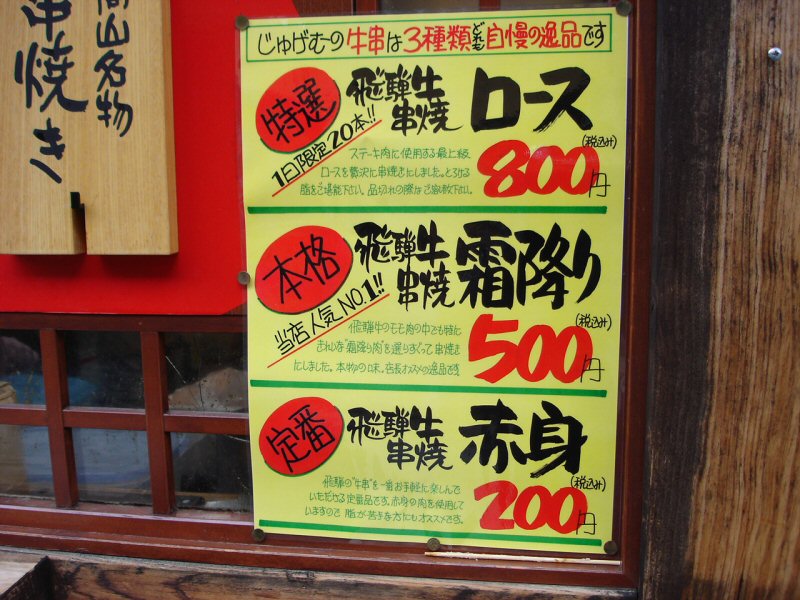 高山名物
串焼き
じゅげむの牛串は3種類どれも自慢の逸品です
特選
飛騨牛
串焼
ロース
1日限定20本!!
ステーキ肉に使用する最上級
ロースを贅沢に串焼きにしました。とろける
脂をご堪能下さい。品切れの際はご容赦下さい。
(税込み)
800円
本格
飛騨牛
串焼
霜降り
当店人気NO.1!!
飛騨牛のモモ肉の中でも特に
きれいな"霜降り肉"を選りすぐって串焼き
にしました。本物の味。店長オススメの逸品です
(税込み)
500円
定番
飛騨牛
串焼
赤身
飛騨の"牛串"を一番お手軽に楽しんで
いただける定番品です。赤身の肉を使用して
いますので脂が苦手な方にもオススメです。
(税込み)
200円